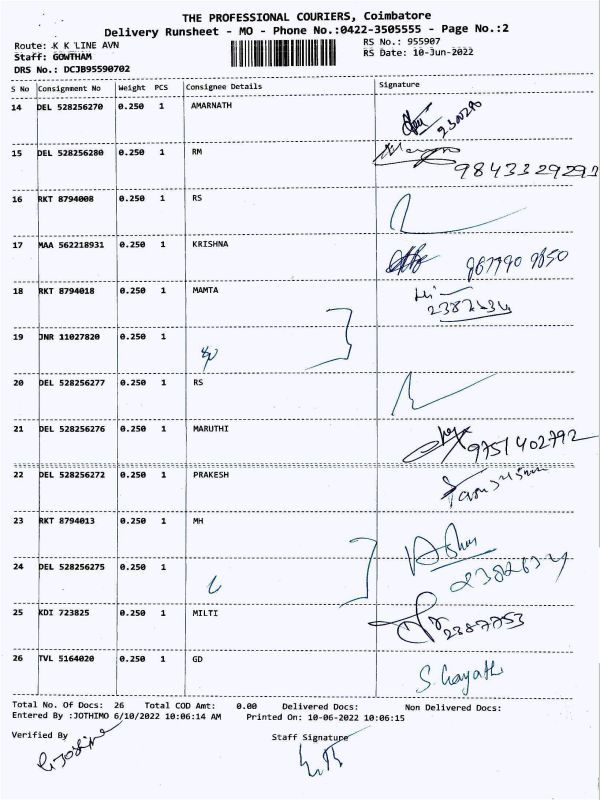 THE PROFESSIONAL COURIERS, Coimbatore
Delivery Runsheet - MO - Phone No.:0422-3505555 - Page No.:2
Route: K K LINE AVN
RS No.: 955907
Staff: GOWTHAM
RS Date: 10-Jun-2022
DRS No.: DCJB95590702
S No Consignment No Weight PCS Consignee Details Signature
14 DEL 528256270 0.250 1 AMARNATH
15 DEL 528256280 0.250 1 RM
9843329293
16 RKT 8794008 0.250 1 RS
17 MAA 562218931 0.250 1 KRISHNA
18 RKT 8794018 0.250 1 MAMTA
19 JNR 11027820 0.250 1
20 DEL 528256277 0.250 1 RS
21 DEL 528256276 0.250 1 MARUTHI
9751402792
22 DEL 528256272 0.250 1 PRAKESH
23 RKT 8794013 0.250 1 MH
24 DEL 528256275 0.250 1
25 KDI 723825 0.250 1 MILTI
2387753
26 TVL 5164020 0.250 1 GD
S. Gayath
Total No. Of Docs: 26 Total COD Amt: 0.00 Delivered Docs: Non Delivered Docs:
Entered By :JOTHIMO 6/10/2022 10:06:14 AM Printed On: 10-06-2022 10:06:15
Verified By
Staff Signature